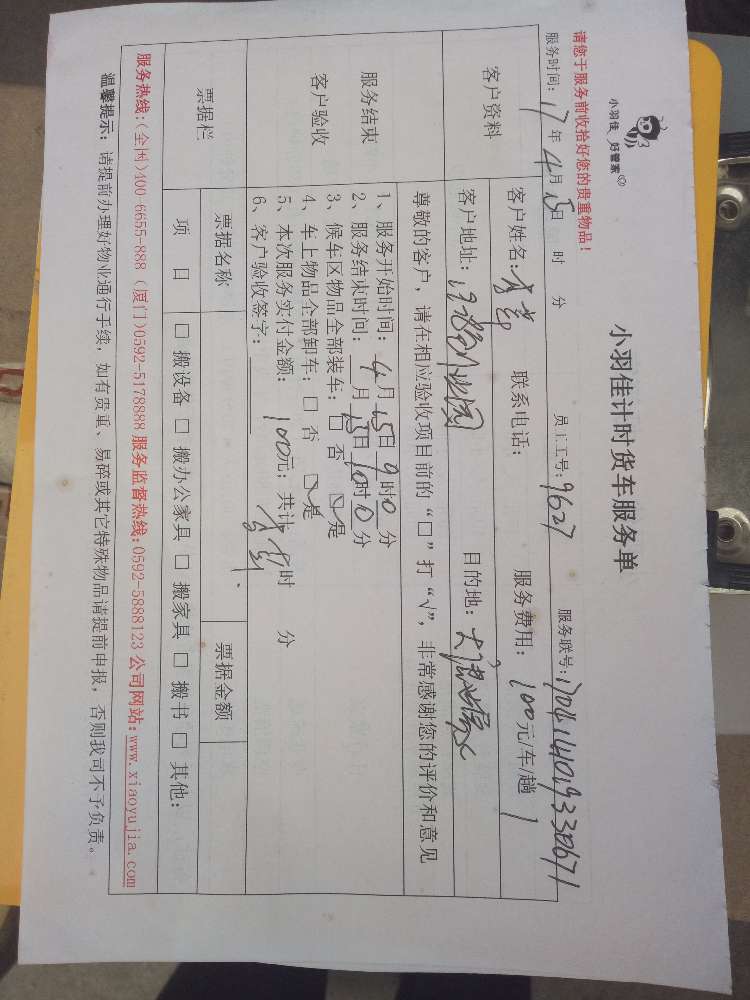 小羽佳 好管家
小羽佳计时货车服务单
请您于服务前收拾好您的贵重物品！
服务时间：17年4月15日 时 分 员工工号：9627 服务联号：
客户资料
客户姓名： 联系电话： 服务费用：100元/车/趟 1
客户地址： 目的地：
服务结束
客户验收
尊敬的客户，请在相应验收项目前的“□”打“√”，非常感谢您的评价和意见
1、服务开始时间：4月15日9时0分
2、服务结束时间： 月15日10时0分
3、候车区物品全部装车：□ 否 ☑ 是
4、车上物品全部卸车：□ 否 ☑ 是
5、本次服务实付金额：100元；共计 时 分
6、客户验收签字：
票据栏
票据名称 票据金额
项 目 □ 搬设备 □ 搬办公家具 □ 搬家具 □ 搬书 □ 其他：
服务热线：(全国)400-6655-888 (厦门)0592-5178888 服务监督热线：0592-5888123 公司网站：www.xiaoyujia.com
温馨提示：请提前办理好物业通行手续，如有贵重、易碎或其它特殊物品请提前申报，否则我司不予负责。